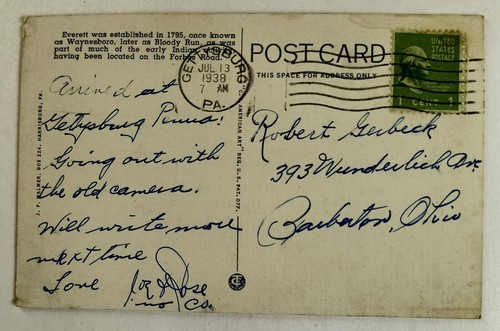 Everett was established in 1795, once known
as Waynesboro, later as Bloody Run, as was
part of much of the early Indian
having been located on the Forbes Road.
POST CARD
THIS SPACE FOR ADDRESS ONLY
GETTYSBURG
JUL 13
7 AM
1938
PA.
UNITED STATES
POSTAGE
1 CENT 1
Arrived at
Gettysburg Penna!
Going out with
the old camera.
Will write more
next time
Love
Co.
Robert Gerbeck
393 Wunderlich Ave.
Barberton, Ohio
J. P. WALMER, BOX 224, HARRISBURG, PA.
"C.T. AMERICAN ART" REG. U.S. PAT. OFF.